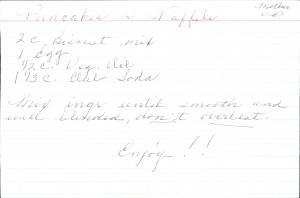 Mother
Pancakes & Waffels
2 c. Biscuit mix
1 Egg
1/2 c. Veg. Oil
1 1/3 c. Club Soda
Mix ingr until smooth and
well blended, don't overbeat.
Enjoy!!